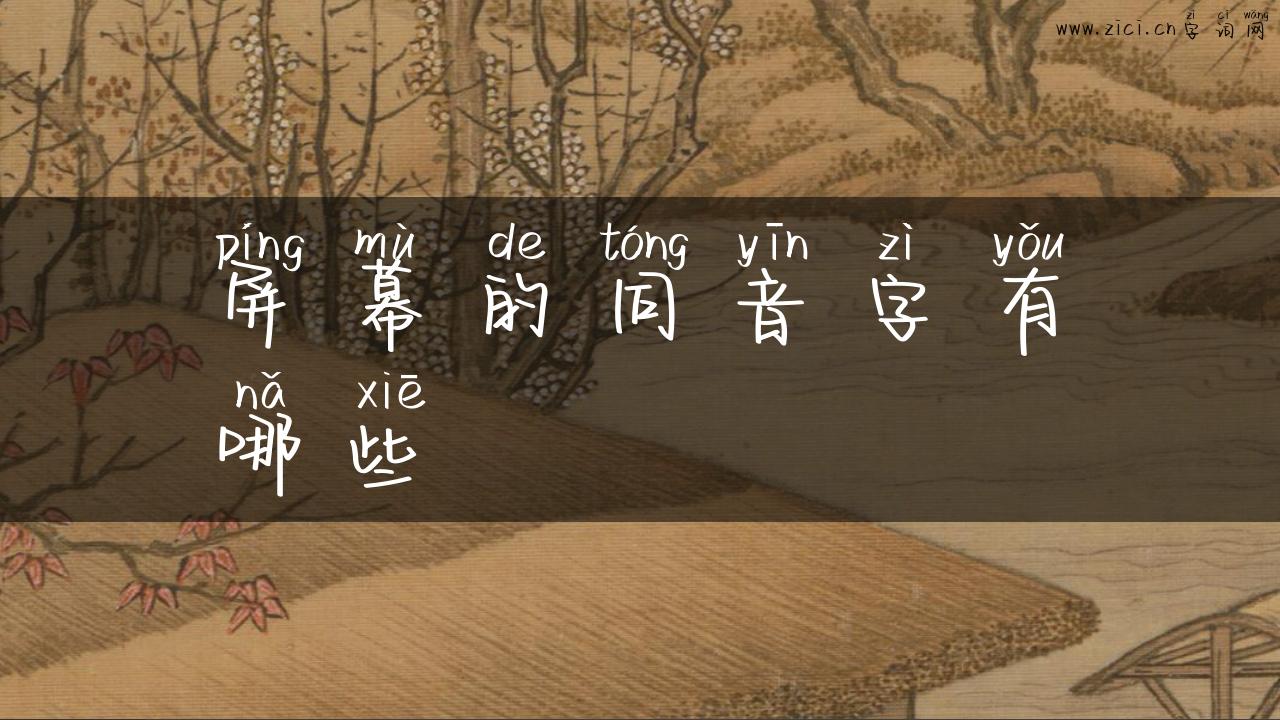 zì cí wǎng
www.zici.cn 字词网
píng mù de tóng yīn zì yǒu
屏幕的同音字有
nǎ xiē
哪些